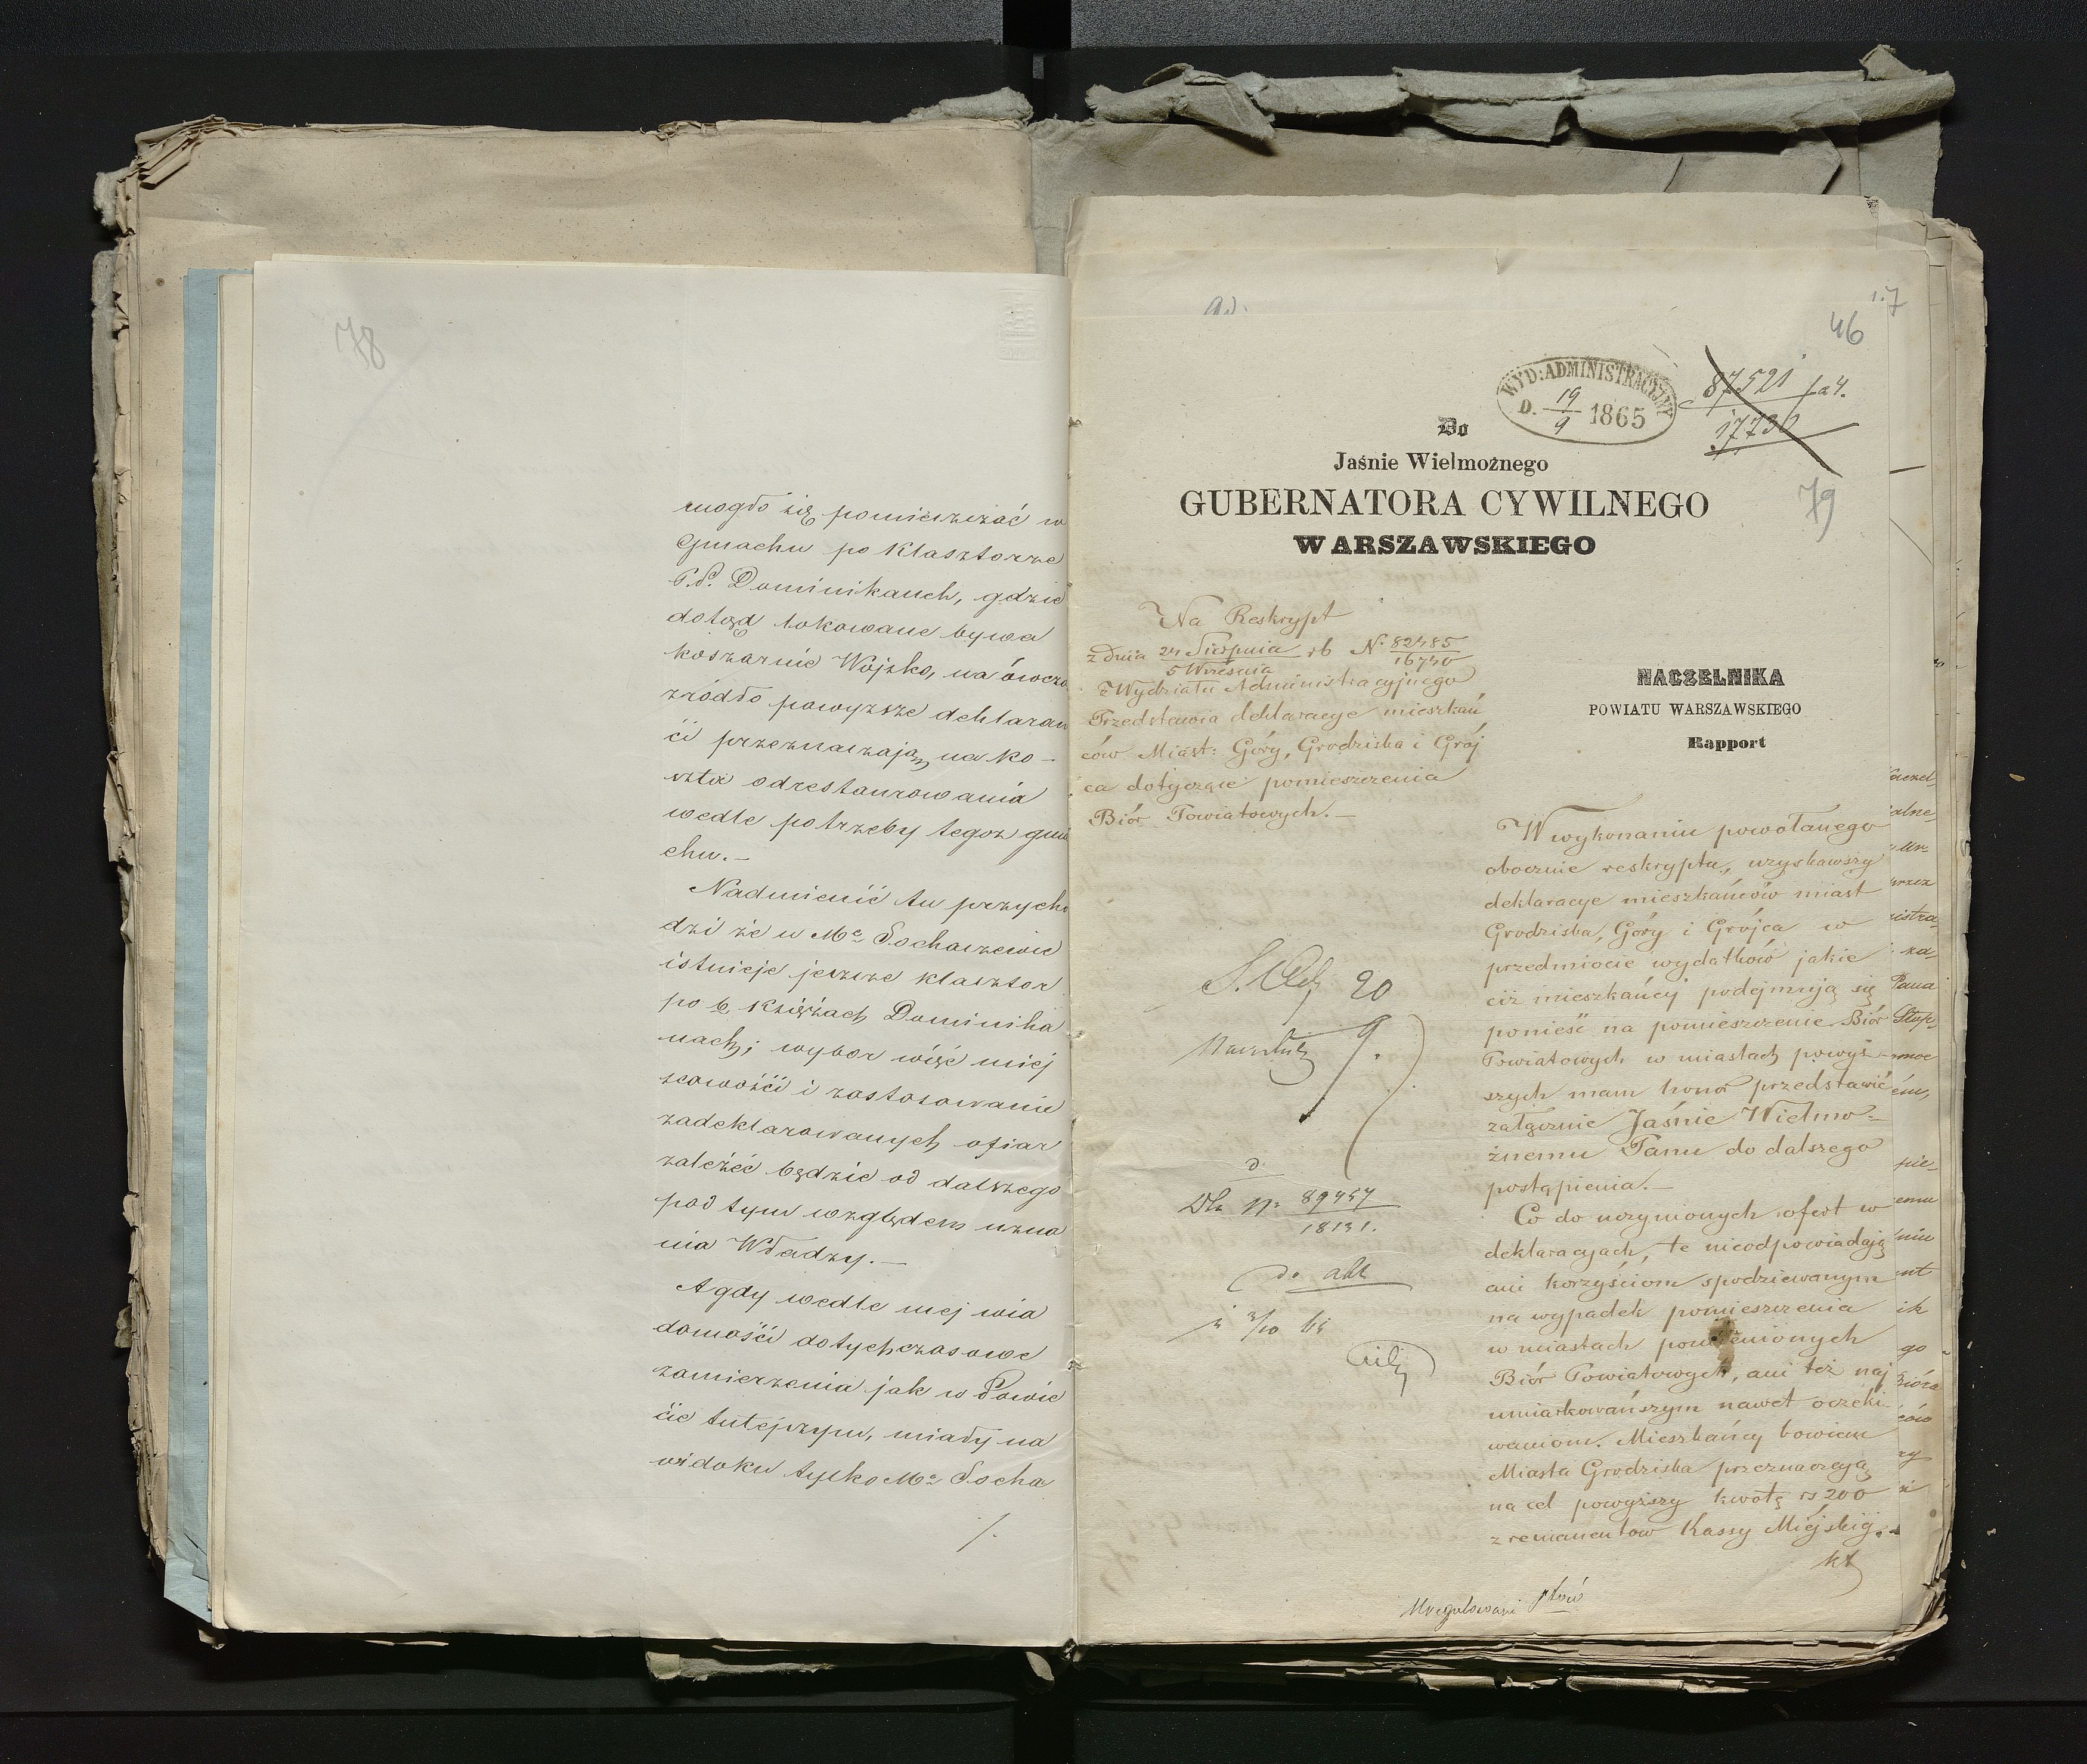 78
mogło się pomieszczać w
Gmachu po Klasztorze
Dominikanch, gdzie
dotąd lokowane bywa
koszarnie Wojsko, na ówczas
źródło powyższe deklaran
ci przeznaczają na ko-
szta odrestaurowania
wedle potrzeby tegoz gma
chu.-
Nadmienić tu przycho
dzi że w Mc Sochaczewie
istnieje jeszcze klasztor
po b. Księżach Dominika
nach; wybor więc miej
scowości i zastosowanie
zadeklarowanych ofiar
zależeć będzie od dalszego
pod tym względem uzna
nia Władzy.-
A gdy wedle mej wia
domości dotychczasowe
zamierzenia jak w Powie
cie tutejszym, miały na
widoku tylko Mo Socha
/.
1.7
46
WYD: ADMINISTRACYJNY
D. 19/9 1865
87521
17730
79
Do
Jaśnie Wielmożnego
GUBERNATORA CYWILNEGO
WARSZAWSKIEGO
Na Reskrypt
z dnia 24 Sierpnia/5 Września rb N. 82485/16740
z Wydziału Administracyjnego
Przedstawia deklaracye mieszkań
ców Miast: Góry, Grodziska i Grój
ca dotyczące pomieszczenia
Biór Powiatowych.-
20
9.
Dla N. 89457
18131.
do akt
NACZELNIKA
POWIATU WARSZAWSKIEGO
Rapport
W wykonaniu powołanego
obocznie reskryptu, uzyskawszy
deklaracye mieszkańców miast
Grodziska, Góry i Grójca w
przedmiocie wydatków jakie
ciż mieszkańcy podejmują się
ponieść na pomieszczenie Biór
Powiatowych w miastach powyż-
szych mam honor przedstawić
załącznie Jaśnie Wielmo-
żnemu Panu do dalszego
postąpienia.-
Co do uczynionych ofert w
deklaracyach, te nieodpowiadają
ani korzyściom spodziewanym
na wypadek pomieszczenia
w miastach pomienionych
Biór Powiatowych, ani też naj
umiarkowańszym nawet oczeki
waniom. Mieszkańcy bowiem
Miasta Grodziska przeznaczają
na cel powyższy kwotę rs 200
z remanentow Kassy Miejskiej.